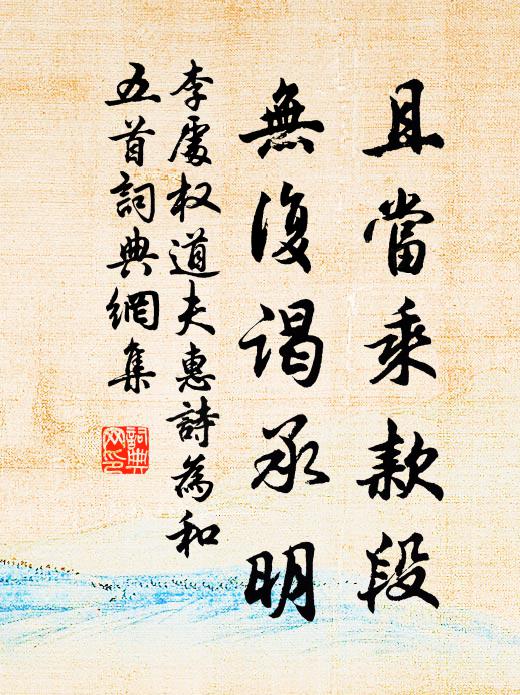 且當乘款段
無復謁承明
李處权道夫惠詩為和
五首詞典網集
詞典